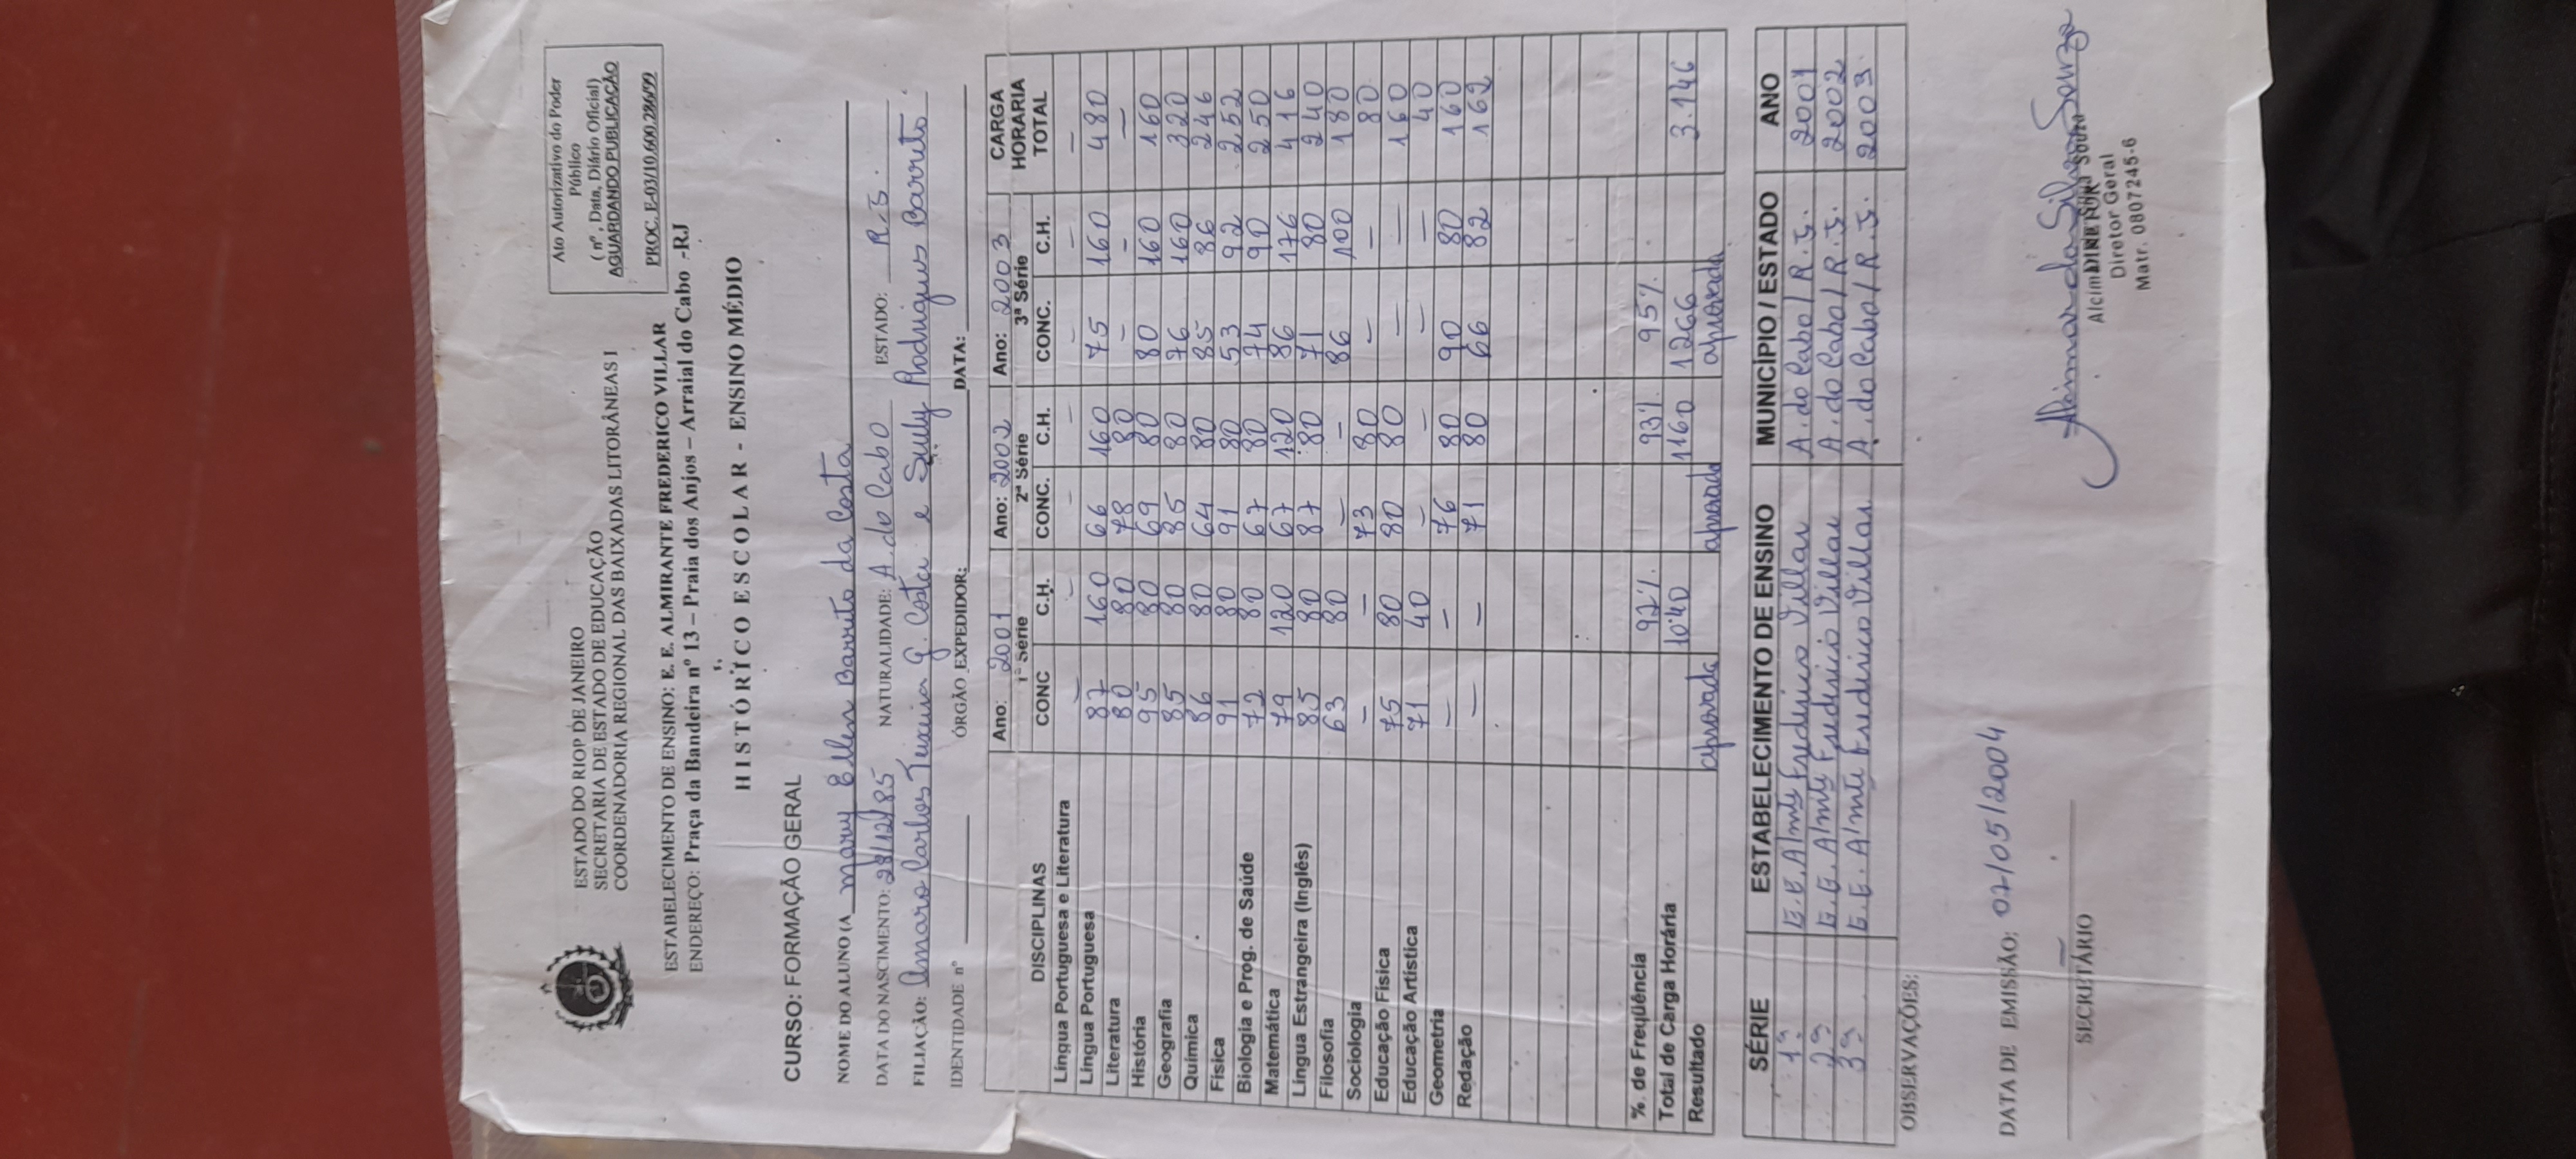 Ato Autorizativo do Poder
Público
( nº , Data, Diário Oficial)
AGUARDANDO PUBLICAÇÃO
PROC. E-03/10.600.286/99
ESTADO DO RIOP DE JANEIRO
SECRETARIA DE ESTADO DE EDUCAÇÃO
COORDENADORIA REGIONAL DAS BAIXADAS LITORÂNEAS I
ESTABELECIMENTO DE ENSINO: E. E. ALMIRANTE FREDERICO VILLAR
ENDEREÇO: Praça da Bandeira nº 13 – Praia dos Anjos – Arraial do Cabo -RJ
HISTÓRICO ESCOLAR - ENSINO MÉDIO
CURSO: FORMAÇÃO GERAL
NOME DO ALUNO (A Mary Ellen Barreto da Costa
DATA DO NASCIMENTO: 28/12/85 NATURALIDADE: A. do Cabo ESTADO: R.J.
FILIAÇÃO: Amaro Carlos Teixeira G. Costa e Suely Rodrigues Barreto.
IDENTIDADE nº ÓRGÃO EXPEDIDOR: DATA:
DISCIPLINAS Ano: 2001 Ano: 2002 Ano: 2003 CARGA HORARIA TOTAL
1ª Série 2ª Série 3ª Série
CONC C.H. CONC. C.H. CONC. C.H.
Língua Portuguesa e Literatura — — — — — — —
Língua Portuguesa 87 160 66 160 75 160 480
Literatura 80 80 78 80 — — —
História 95 80 69 80 80 160 160
Geografia 85 80 85 80 76 160 320
Química 86 80 64 80 85 86 246
Física 91 80 91 80 53 92 252
Biologia e Prog. de Saúde 72 80 67 80 74 90 250
Matemática 79 120 67 120 86 176 416
Língua Estrangeira (Inglês) 85 80 87 80 71 80 240
Filosofia 63 80 — — 86 100 180
Sociologia — — 73 80 — — 80
Educação Física 75 80 80 80 — — 160
Educação Artística 71 40 — — — — 40
Geometria — — 76 80 90 80 160
Redação — — 71 80 66 82 162
%. de Freqüência 97%. 93%. 95%.
Total de Carga Horária 1040 1160 1266 3.146
Resultado aprovada aprovada aprovada
SÉRIE ESTABELECIMENTO DE ENSINO MUNICÍPIO / ESTADO ANO
1ª E.E. Almte Frederico Villar A. do Cabo / R.J. 2001
2ª E.E. Almte Frederico Villar A. do Cabo / R.J. 2002
3ª E.E. Almte Frederico Villar A. do Cabo / R.J. 2003
OBSERVAÇÕES:
DATA DE EMISSÃO: 07/05/2004
Alcimar da Silva Souza
SECRETÁRIO DIRETOR
Diretor Geral
Matr. 0807245-6